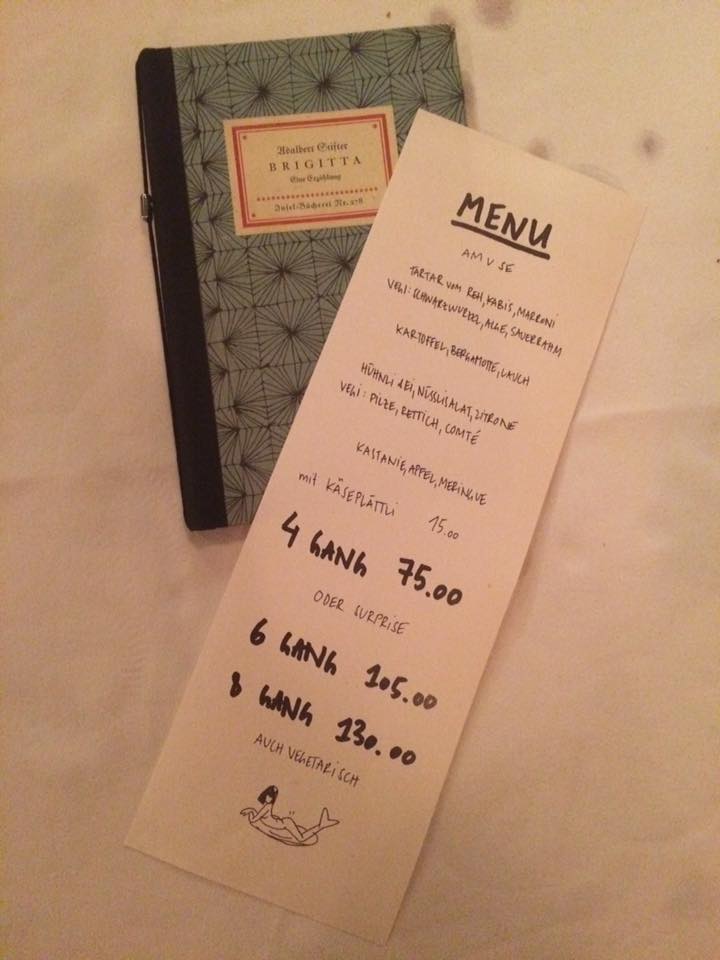 Adalbert Stifter
BRIGITTA
Eine Erzählung
Insel-Bücherei Nr. 278
MENU
AMUSE
TARTAR VOM REH, KABIS, MARRONI
VEGI: SCHWARZWURZEL, ALGE, SAUERRAHM
KARTOFFEL, BERGAMOTTE, LAUCH
HÜHNLI & EI, NÜSSLISALAT, ZITRONE
VEGI: PILZE, RETTICH, COMTÉ
KASTANIE, APFEL, MERINGUE
mit KÄSEPLÄTTLI 15.00
4 GANG 75.00
ODER SURPRISE
6 GANG 105.00
8 GANG 130.00
AUCH VEGETARISCH